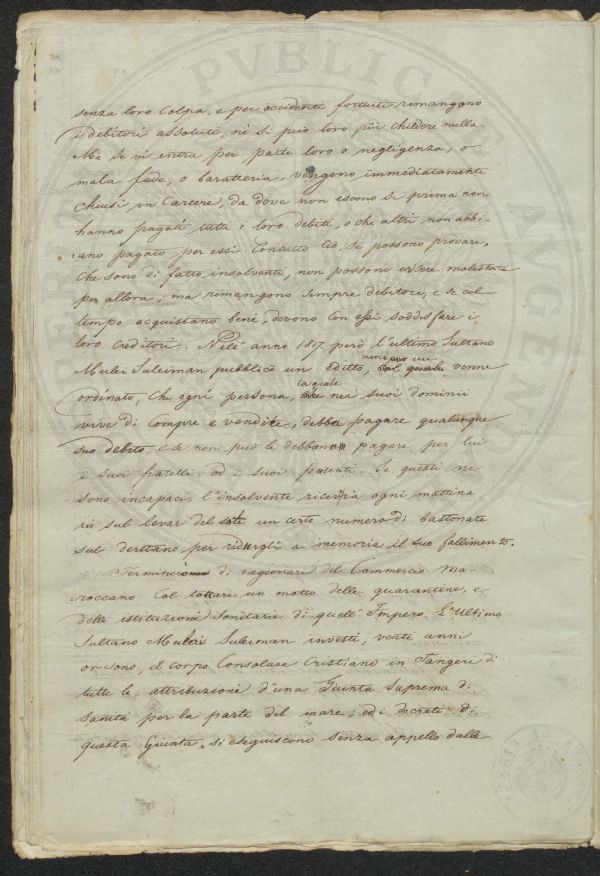 senza loro colpa, e per accidenti fortuiti rimangono
i debitori assoluti, nè si può loro più chiedere nulla.
Ma se vi entra per parte loro o negligenza, o
mala fede, o baratteria, vengono immediatamente
chiusi in Carcere, da dove non escono se prima non
hanno pagati tutti i loro debiti, o che altri non abbi-
:ano pagato per essi. Contutto ciò, se possono provare,
che sono di fatto insolventi, non possono essere molestati
per allora; ma rimangono sempre debitori, e se col
tempo acquistano beni, devono con essi soddisfare i
loro creditori. Nell' anno 1817 però l'ultimo Sultano
Mulei Suleiman pubblicò un Editto, cui venne
ordinato, che ogni persona, la quale nei suoi dominii
vive di compre e vendite, debba pagare qualunque
suo debito, e se non può lo debbano pagare per lui
i suoi fratelli, od i suoi parenti. Se questi ne
sono incapaci, l'insolvente riceveria ogni mattina
in sul levar del sole un certo numero di bastonate
sul deretano per ridurgli a memoria il suo fallimento.
Terminerò di ragionare del Commercio Ma-
roccano col toccare un motto delle quarantine, e
delle istituzioni Sanitarie di quell' Impero. L'ultimo
Sultano Mulei Suleiman investì, venti anni
or sono, il Corpo Consolare Cristiano in Tangeri di
tutte le attribuzioni d'una Giunta Suprema di
Sanità per la parte del mare; ed i decreti di
questa Giunta si eseguiscono senza appello dalle
PVBLIC